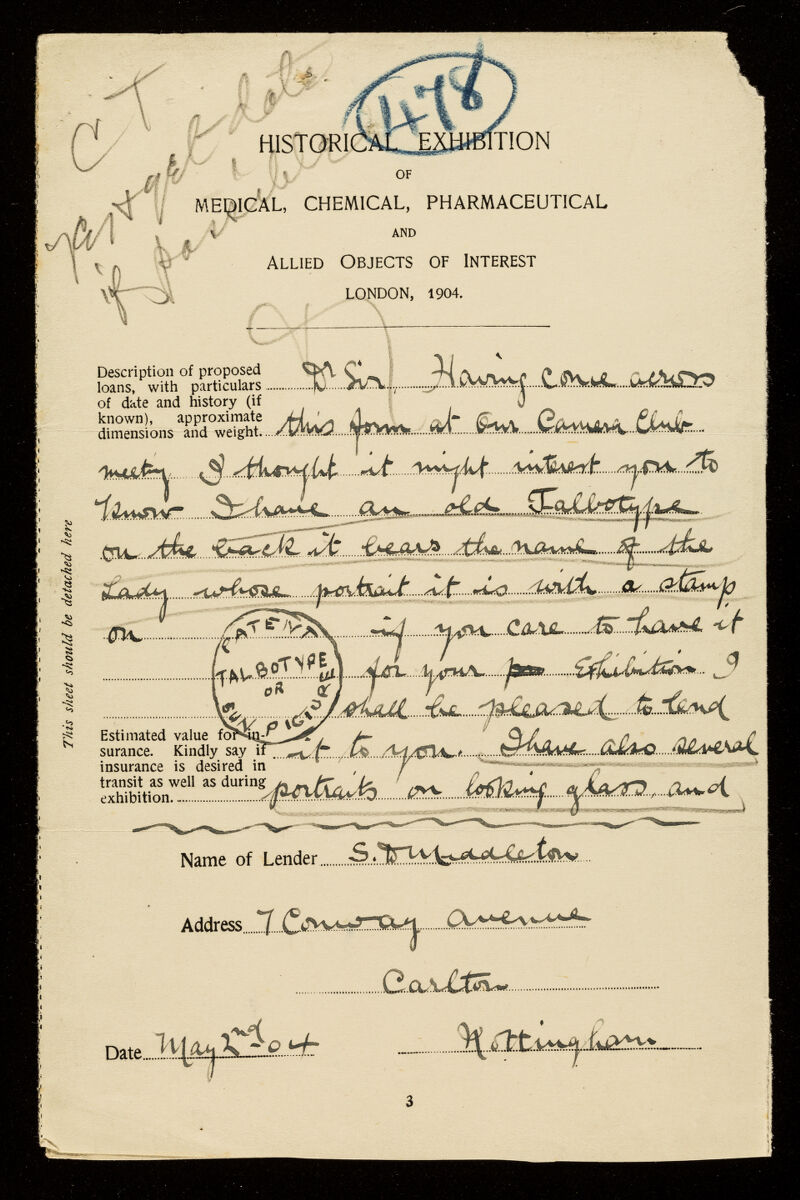 C T
Yes + get date
if possible
478
HISTORICAL EXHIBITION
OF
MEDICAL, CHEMICAL, PHARMACEUTICAL
AND
ALLIED OBJECTS OF INTEREST
LONDON, 1904.
Description of proposed
loans, with particulars
of date and history (if
known), approximate
dimensions and weight.
Dr Sir, Having come across
this form at our Camera Club
meetg I thought it might interest you to
know I have an old Talbotype
on the back it bears the name of the
Lady whose portrait it is with a stamp
on if you care to have it
PATENT
TALBOTYPE
OR
SUN PICTURE
for your Exhibition I
shall be pleased to lend
Estimated value for in-
surance. Kindly say if
insurance is desired in
transit as well as during
exhibition.
it to you. I have also several
portraits on looking glass, and
This sheet should be detached here
Name of Lender S. D Middleton
Address 7 Conway Avenue
Carlton
Date May 2nd 04 Nottingham
3